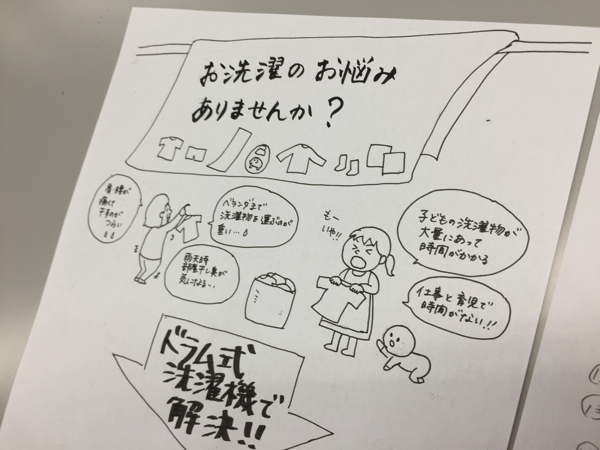 お洗濯のお悩み
ありませんか？
肩・腰が
痛くて
干すのが
つらい
ベランダまで
洗濯物を運ぶのが
重い…
雨天時
部屋干し臭が
気になる…
もー
いや!!
子どもの洗濯物が
大量にあって
時間がかかる
仕事と育児で
時間がない!!
ドラム式
洗濯機で
解決!!